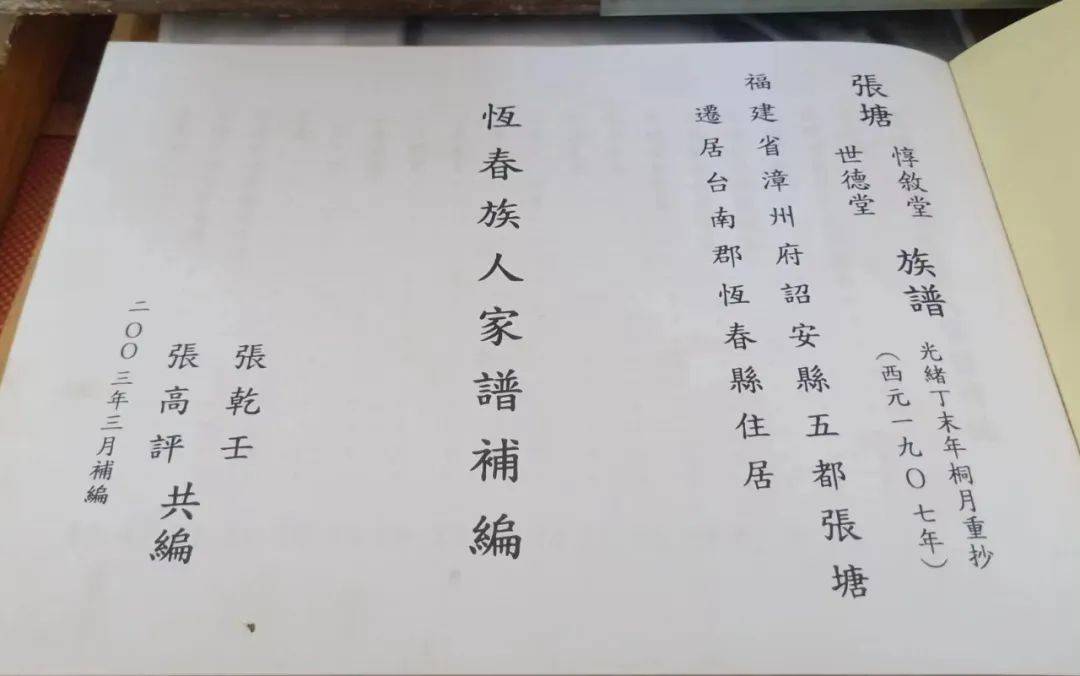 張塘 惇敘堂 世德堂 族譜 光緒丁未年桐月重抄
（西元一九〇七年）
福建省漳州府詔安縣五都張塘
遷居台南郡恆春縣住居
恆春族人家譜補編
張乾壬
張高評 共編
二〇〇三年三月補編